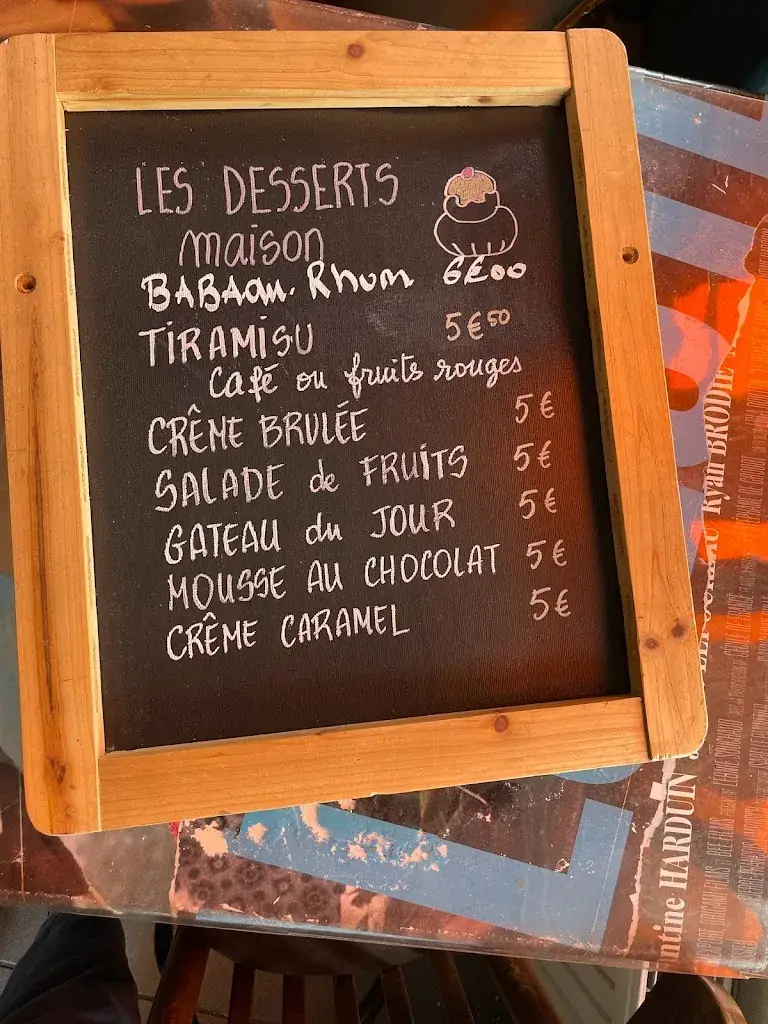 LES DESSERTS
maison
BABA au Rhum 6€00
TIRAMISU 5€50
Café ou fruits rouges
CRÊME BRULÉE 5€
SALADE de FRUITS 5€
GATEAU du JOUR 5€
MOUSSE AU CHOCOLAT 5€
CRÊME CARAMEL 5€
Ryan BRODIE
ntine HARDUIN